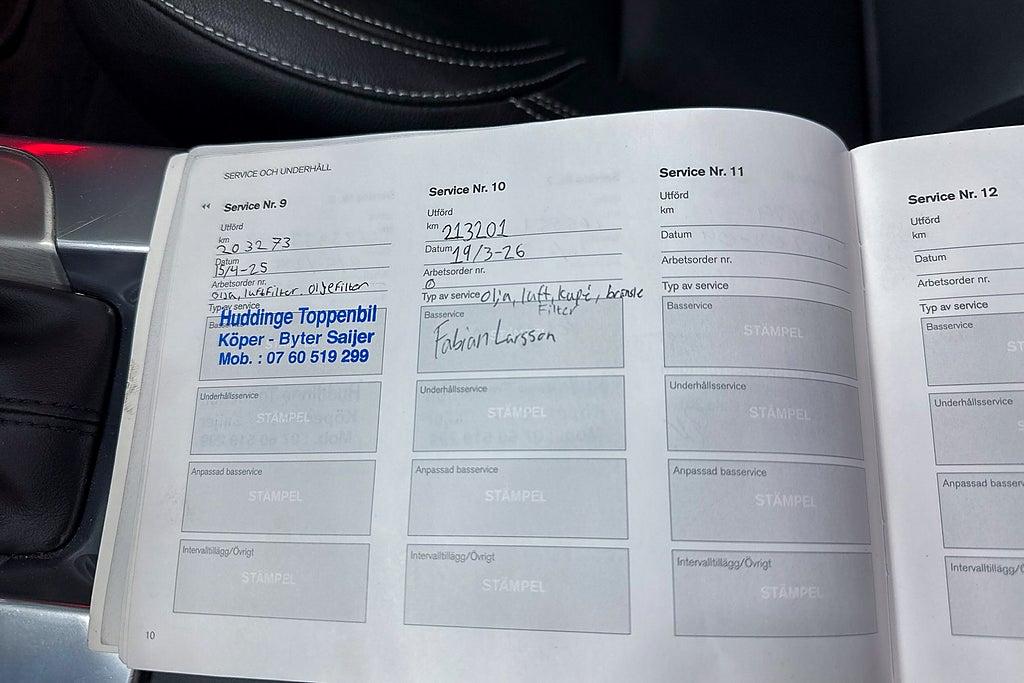 SERVICE OCH UNDERHÅLL
Service Nr. 9
Utförd
km 203273
Datum 15/4-25
Arbetsorder nr.
olja, luftfilter, oljefilter
Typ av service
Basservice
Huddinge Toppenbil
Köper - Byter Saijer
Mob. : 07 60 519 299
Underhållsservice
STÄMPEL
Anpassad basservice
STÄMPEL
Intervalltillägg/Övrigt
STÄMPEL
10
Service Nr. 10
Utförd
km 213201
Datum 19/3-26
Arbetsorder nr.
0
Typ av service olja, luft, kupé, bränsle
Filter
Basservice
Fabian Larsson
Underhållsservice
STÄMPEL
Anpassad basservice
STÄMPEL
Intervalltillägg/Övrigt
STÄMPEL
Service Nr. 11
Utförd
km
Datum
Arbetsorder nr.
Typ av service
Basservice
STÄMPEL
Underhållsservice
STÄMPEL
Anpassad basservice
STÄMPEL
Intervalltillägg/Övrigt
STÄMPEL
Service Nr. 12
Utförd
km
Datum
Arbetsorder nr.
Typ av service
Basservice
Underhållsservice
Anpassad
Intervalltillägg/